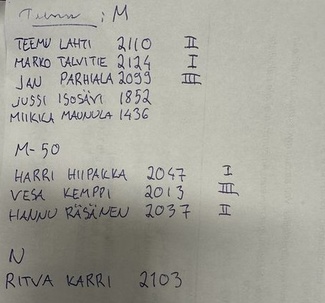 : M
TEEMU LAHTI 2110 II
MARKO TALVITIE 2124 I
JAN PARHIALA 2099 III
JUSSI ISOSÄVI 1852
MIIKKA MAUNULA 1436
M-50
HARRI HIIPAKKA 2047 I
VESA KEMPPI 2013 III
HANNU RÄSÄNEN 2037 II
N
RITVA KARRI 2103